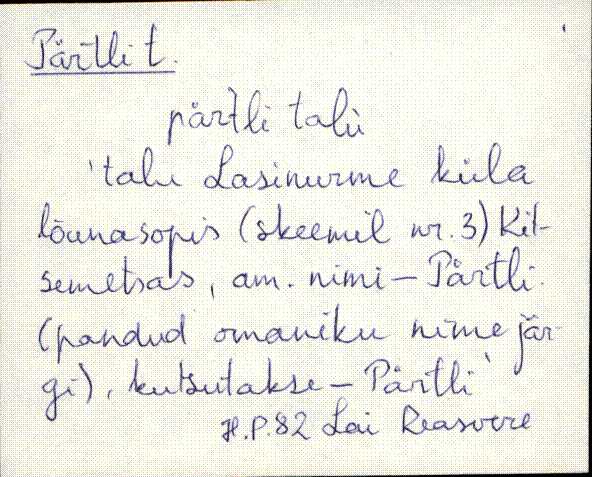 Pärtli t.
pärtli talu
'talu Lasinurme küla
lõunasopis (skeemil nr. 3) Kit-
semetsas, am. nimi – Pärtli.
(pandud omaniku nime jär-
gi), kutsutakse – Pärtli'
H.P. 82 Lai Reasvere